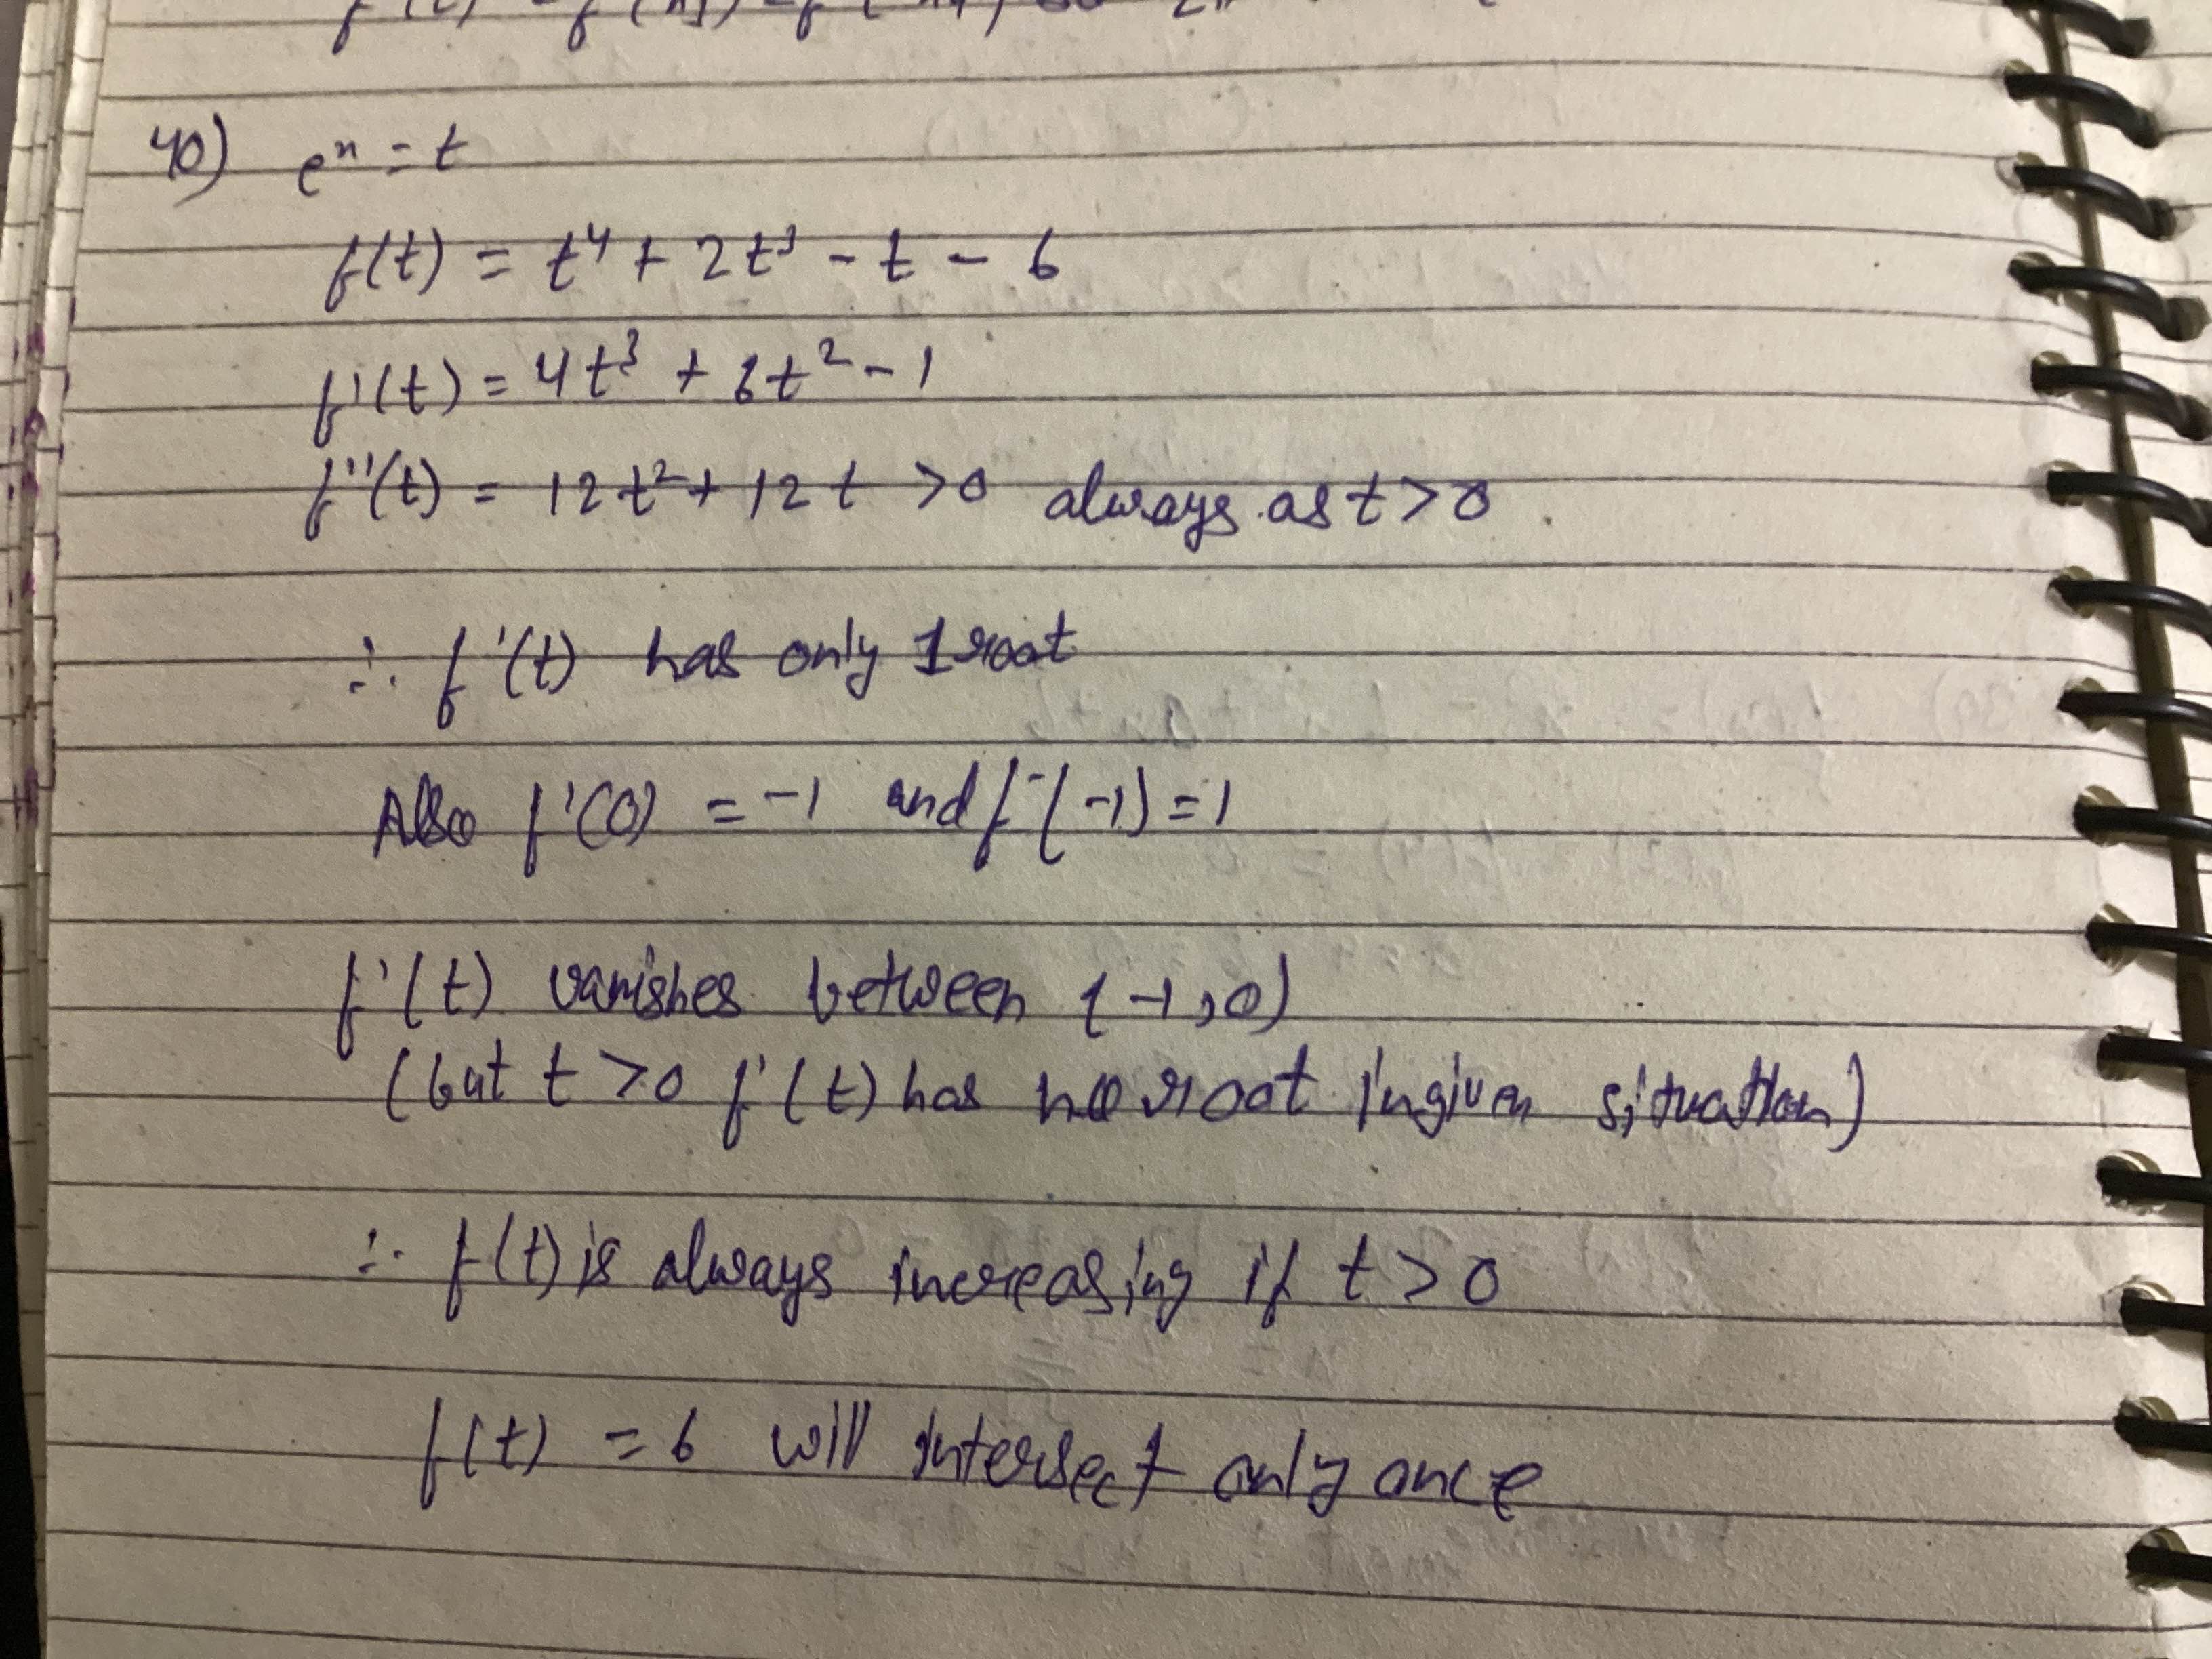 40) eˣ = t
f(t) = t⁴ + 2t³ - t - 6
f'(t) = 4t³ + 6t² - 1
f''(t) = 12t² + 12t >0 always as t>0
∴ f'(t) has only 1 root
Also f'(0) = -1 and f'(-1) = 1
f'(t) vanishes between (-1,0)
(but t >0 f'(t) has no root in given situation)
∴ f(t) is always increasing if t > 0
f(t) = 6 will intersect only once